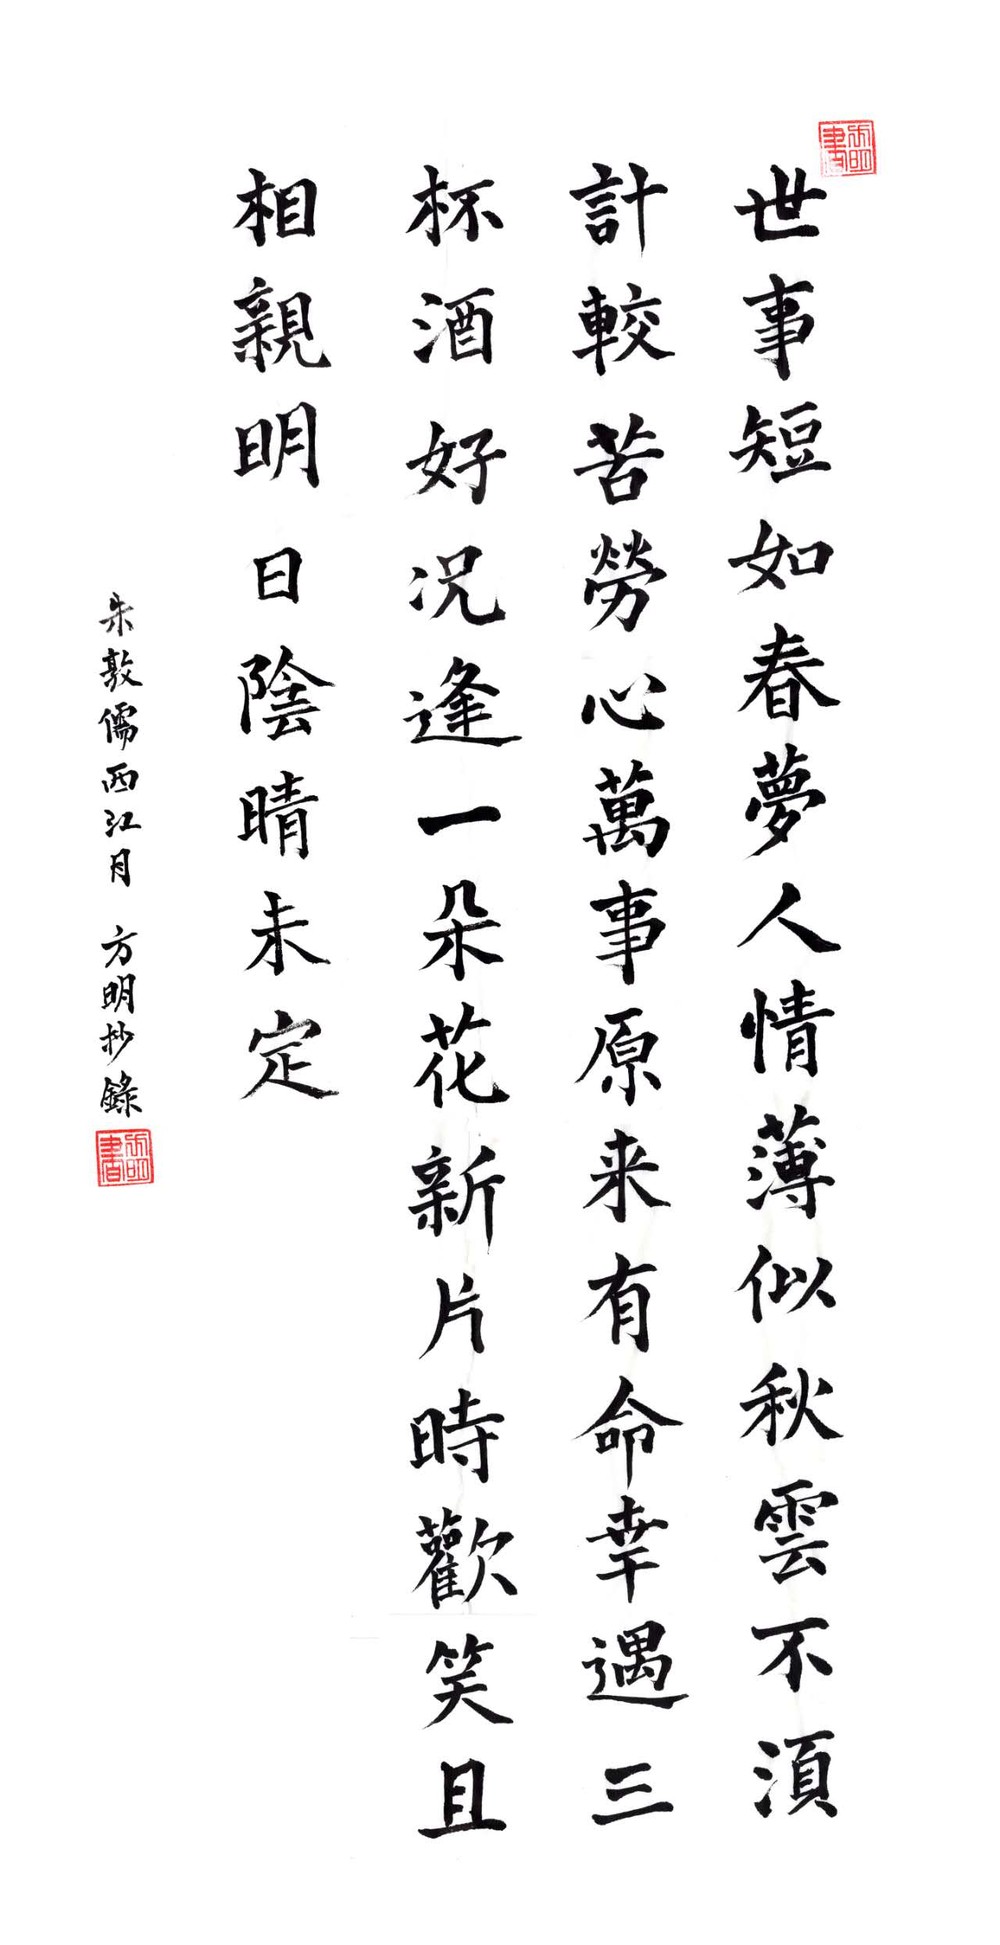 世事短如春夢人情薄似秋雲不湏
計較苦勞心萬事原来有命幸遇三
杯酒好况逢一朵花新片時歡笑且
相親明日陰晴未定
朱敦儒西江月 方明抄錄